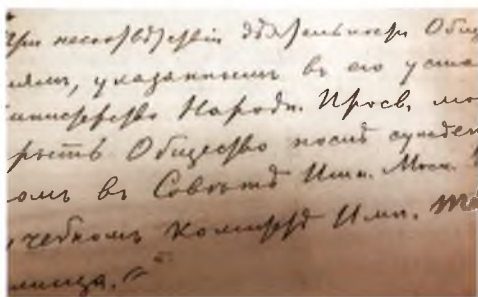 При несоотвѣтствіи дѣятельности Общ
ямъ, указаннымъ въ его уста
инистерство Народн. Просв. мо
рыть Общество послѣ сужден
омъ въ Совѣтѣ Имп. Моск.
учебномъ Комитетѣ Имп.
лища."